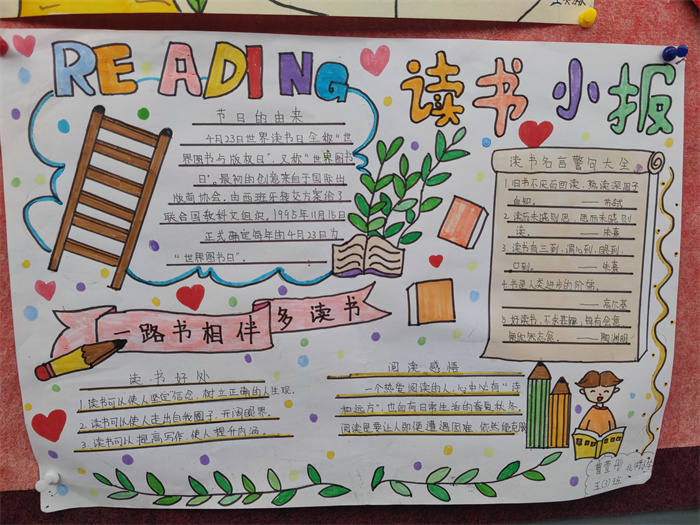 READING
读书小报
节日的由来
4月23日世界读书日全称"世
界图书与版权日"，又称"世界图书
日"。最初的创意来自于国际出
版商协会，由西班牙转交方案给了
联合国教科文组织，1995年11月15日
正式确定每年的4月23日为
"世界图书日"。
读书名言警句大全
1.旧书不厌百回读，熟读深思子
自知。——苏轼
2.读而未晓则思，思而未晓则
读。——朱熹
3.读书有三到，谓心到，眼到，
口到。——朱熹
4.书是人类进步的阶梯。
——高尔基
5.好读书，不求甚解，每有会意，
——陶渊明
一路书相伴 多读书
读书好处
1.读书可以使人坚定信念，树立正确的人生观。
2.读书可以使人走出自我圈子，开阔眼界。
3.读书可以提高写作，使人提升内涵。
阅读感悟
一个热爱阅读的人，心中必有"诗
和远方"，也会有日常生活的春夏秋冬
阅读是要让人即便遭遇困难，依然能克服
五(3)班